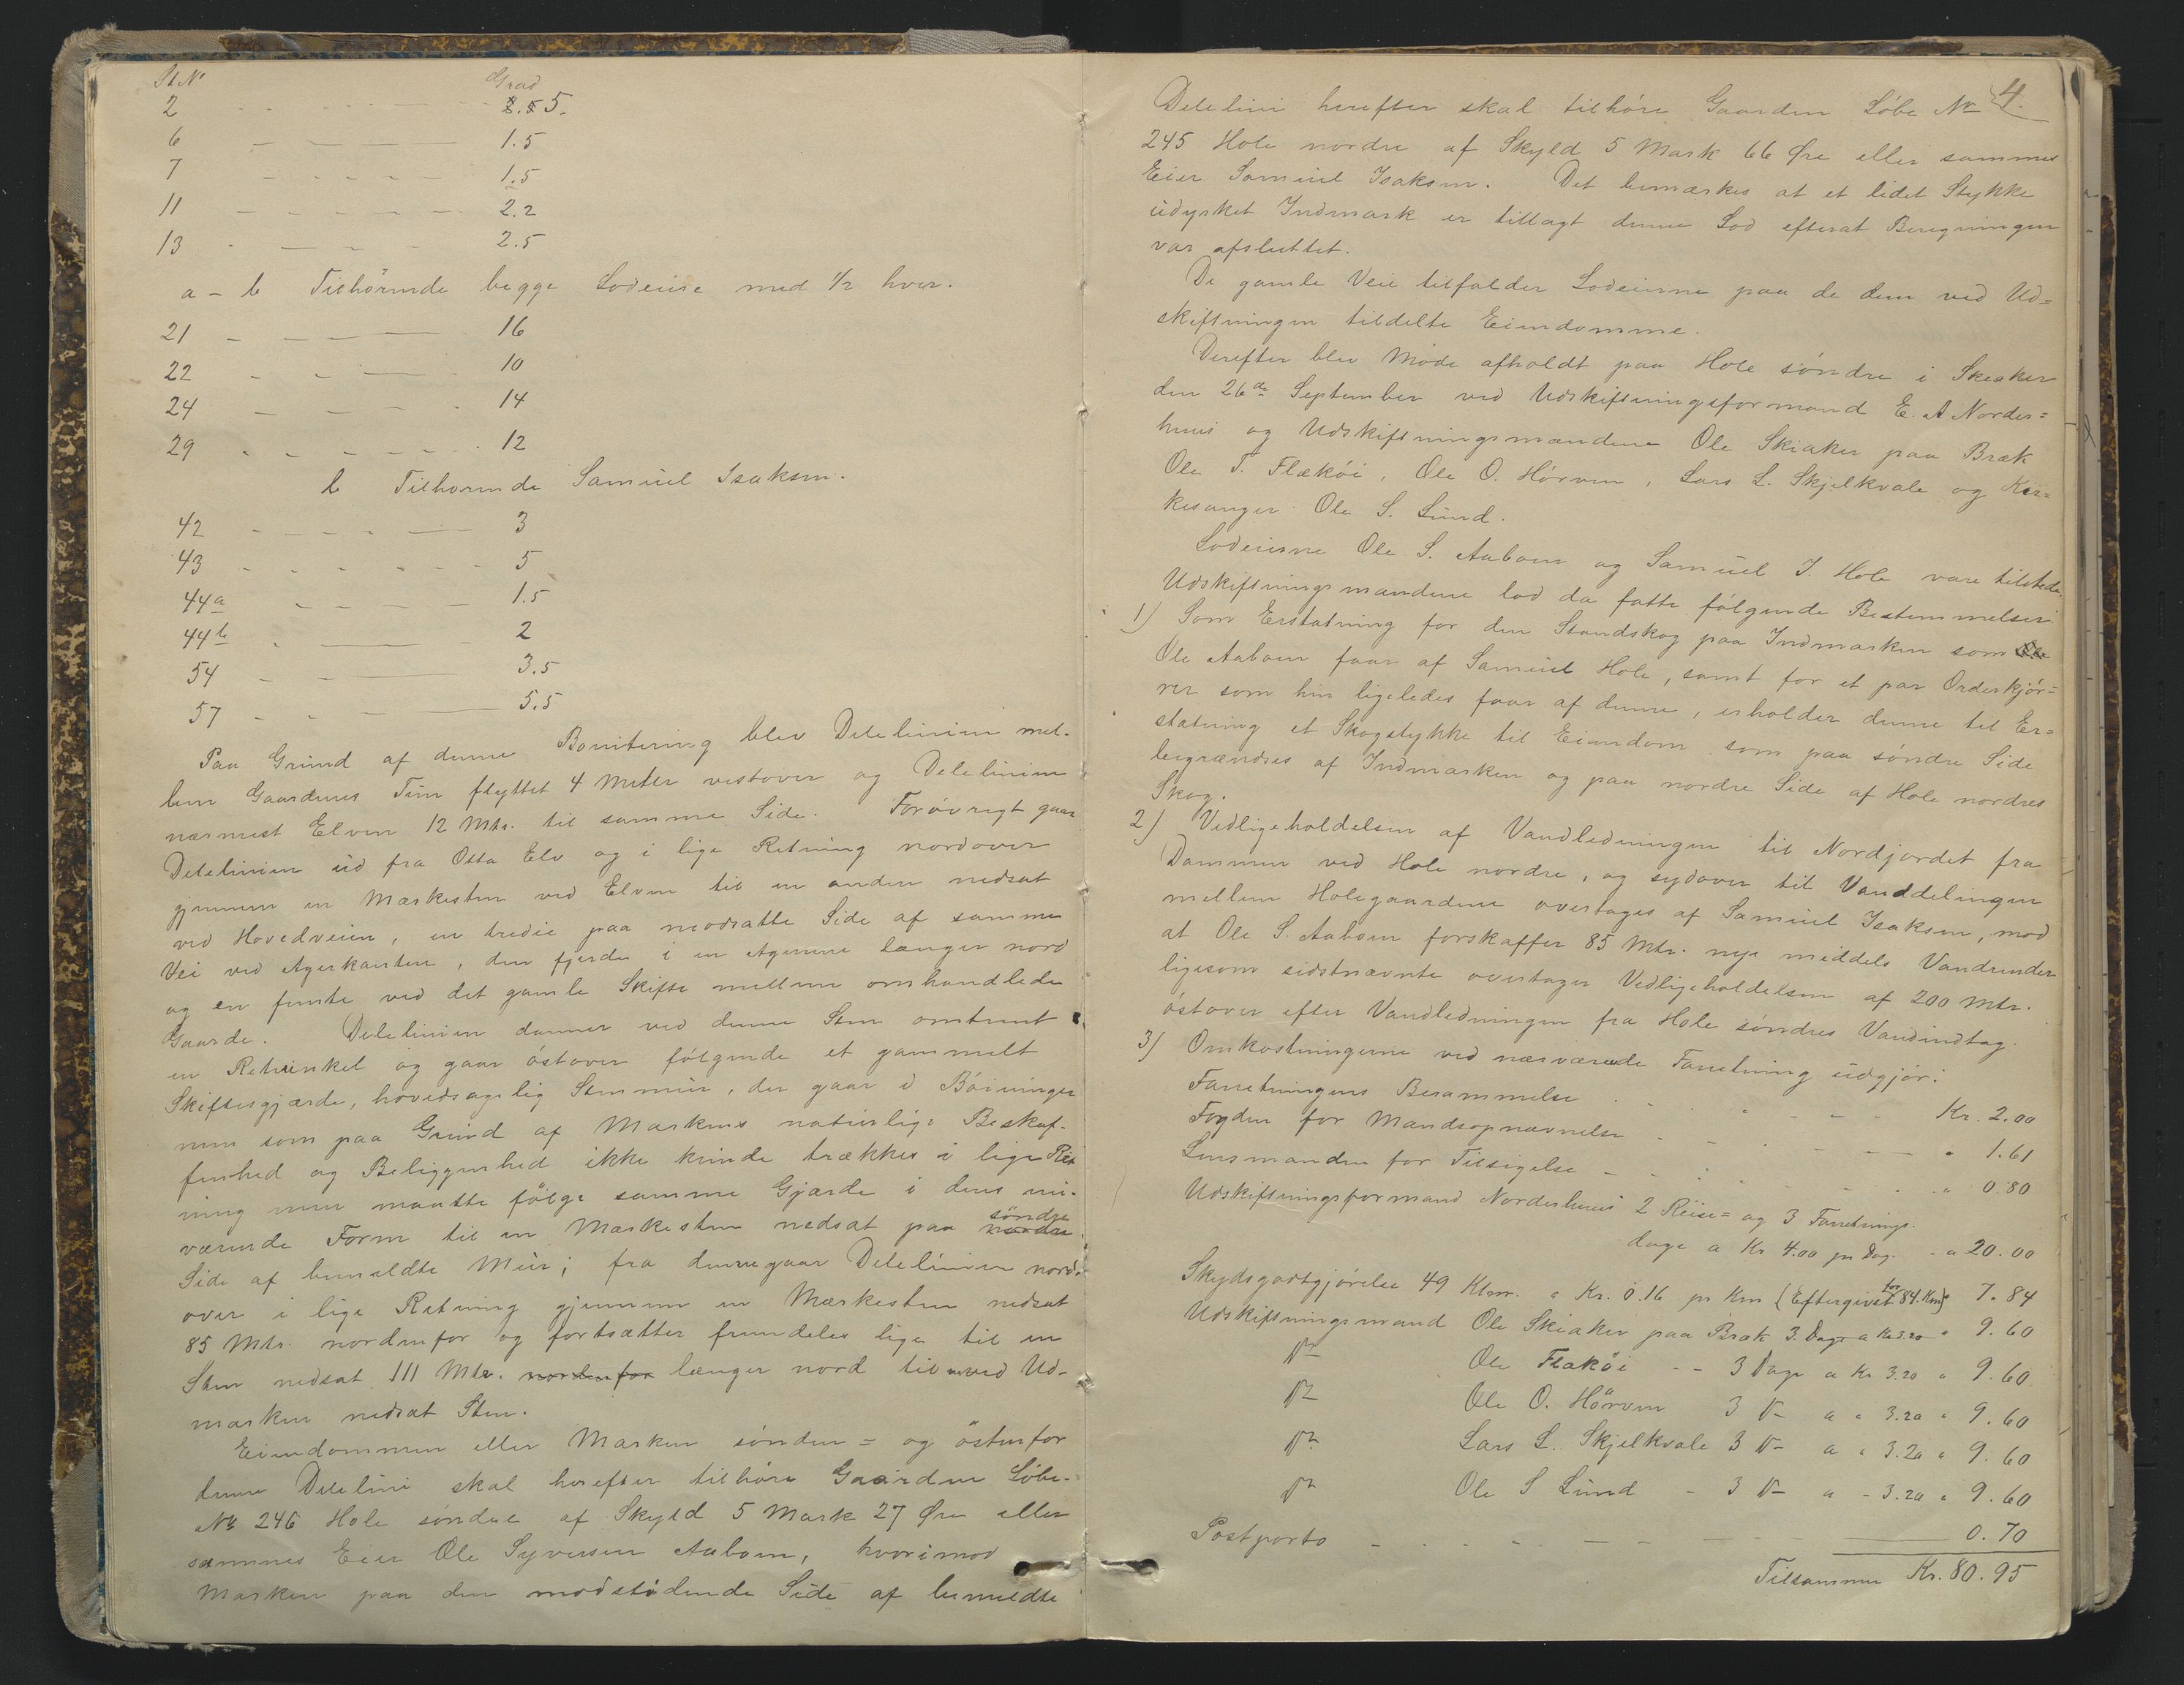 St N° Grad
2 - - - - - 2.5 5.
6 - - - - - 1.5
7 - - - - - 1.5
11 - - - - - 2.2
13 - - - - - 2.5
a - b Tilhörende begge Lodeiere med 1/2 hver.
21 - - - - 16
22 - - - - 10
24 - - - - 14
29 - - - - 12
b Tilhørende Samuel Isaksen.
42 - - - - 3
43 - - - - 5
44a - - - - 1.5
44b - - - - 2
54 - - - - 3.5
57 - - - - 5.5
Paa Grund af denne Bonitering blev Delelinien mel-
lem Gaardenes Tun flyttet 4 Meter vestover og Delelinien
nærmest Elven 12 Mtr. til samme Side. Forøvrigt gaar
Delelinien ud fra Otta Elv og i lige Retning nordover
gjennem en Mærkesten ved Elven til en anden nedsat
ved Hovedveien, en tredie paa modsatte Side af samme
Vei ved Agerkanten, den fjerde i en Agerrene længer nord
og en femte ved det gamle Skifte mellem omhandlede
Gaarde. Delelinien danner ved denne Sten omtrent
en Retvinkel og gaar östover følgende et gammelt
Skiftesgjærde, hovedsagelig Stenmur, der gaar i Bøininger
men som paa Grund af Markens naturlige Beskaf-
fenhed og Beliggenhed ikke kunde trækkes i lige Ret
ning men maatte følge samme Gjærde i dens nu-
værende Form til en Mærkesten nedsat paa nordre söndre
Side af bemeldte Mur; fra denne gaar Delelinien nord-
over i lige Retning gjennem en Mærkesten nedsat
85 Mtr. nordenfor og fortsætter fremdeles lige til en
Sten nedsat 111 Mtr. nordenfor længer nord til en ved Ud-
marken nedsat Sten.
Eiendommen eller Marken sønden = og östenfor
denne Delelini skal herefter tilhøre Gaarden Löbe-
No 246 Hole søndre af Skyld 5 Mark 27 Øre eller
sammes Eier Ole Syversen Aabøen, hvorimod
Marken paa den modstødende Side af bemeldte
4.
Delelini herefter skal tilhöre Gaarden Löbe No
245 Hole nordre af Skyld 5 Mark 66 Øre eller sammes
Eier Samuel Isaksen. Det bemærkes at et lidet Stykke
udyrket Indmark er tillagt denne Lod efterat Beregningen
var afsluttet.
De gamle Veie tilfalder Lodeierne paa de dem ved Ud=
skiftningen tildelte Eiendomme.
Derefter blev Møde afholdt paa Hole søndre i Skeaker
den 26de September ved Udskiftningsformand E. A. Norder=
huus og Udskiftningsmændene Ole Skiaker paa Bræk
Ole T. Flækøi, Ole O. Hörven, Lars L. Skjelkvale og Kir=
kesanger Ole S. Lund.
Lodeierne Ole S. Aaboen og Samuel I. Hole vare tilstede.
Udskiftningsmændene lod da fatte følgende Bestemmelser
1) Som Erstatning for den Standskog paa Indmarken som Ole
Ole Aaboen faar af Samuel Hole, samt for et par Orderkjör=
rer som hin ligeledes faar af denne, erholder denne til Er=
statning et Skogstykke til Eiendom som paa søndre Side
begrændses af Indmarken og paa nordre Side af Hole nordres
Skog.
2) Vedligeholdelsen af Vandledningen til Nordjordet fra
Dammen ved Hole nordre, og sydover til Vanddelingen
mellem Holegaardene overtages af Samuel Isaksen, mod
at Ole S. Aaboen forskaffer 85 Mtr. nye middels Vandrender
ligesom sidstnævnte overtager Vedligeholdelsen af 200 Mtr.
östover efter Vandledningen fra Hole søndres Vandindtag.
3) Omkostningerne ved nærværende Forretning udgjör:
Forretningens Berammelse - - - - - Kr. 2.00
Fogden for Mandsopnævnelse - - - - " 1.61
Lensmanden for Tilsigelse - - - - " 0.80
Udskiftningsformand Norderhuus 2 Reise= og 3 Forretnings-
dage a Kr 4.00 pr Dag. - " 20.00
Skydsgodtgjörelse 49 Klm. a Kr. 0.16 pr Km (Eftergivet for 84. Km) " 7.84
Udskiftningsmand Ole Skiaker paa Bræk 3 Dage a Kr 3.20 " 9.60
Do Ole Flækøi - - 3 Dage a Kr 3.20 " 9.60
Do Ole O. Hörven 3 Do a " 3.20 " 9.60
Do Lars L. Skjelkvale 3 Do a " 3.20 " 9.60
Do Ole S Lund - 3 Do a - 3.20 " 9.60
Postporto - - - - - 0.70
Tilsammen Kr. 80.95